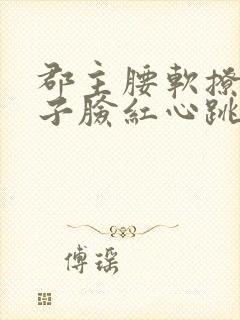 郡主腰軟撩
子臉紅心跳
傅瑤